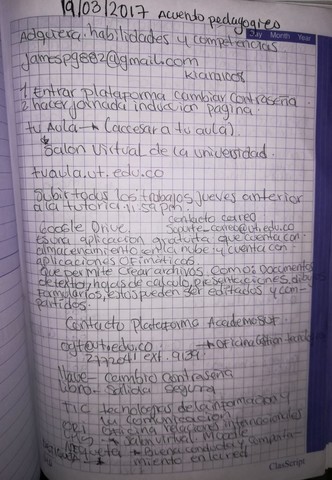 19/03/2017 Acuerdo pedagogico
Day Month Year
Adquirera habilidades y competencias
jamespg882@gmail.com
1 Entrar plataforma cambiar contraseña
2 hacer jornada induccion pagina.
tu Aula → (accesar a tu aula).
Salon virtual de la universidad.
tuaula.ut.edu.co
Subir todos los trabajos jueves anterior
a la tutoria 11:59 pm.
contacto correo
Google Drive.
es una aplicacion gratuita que cuenta con
almacenamiento en la nube y cuenta con
aplicaciones ofimaticas.
Que permite crear archivos como: Documentos
de texto, hojas de calculo, presentaciones, dibujos
formularios, estos pueden ser editados y com-
partidos.
Contacto Plataforma Academusoft
ogt@ut.edu.co → oficina
ext. 9139
llave - cambio contraseña
libro - salida segura
TIC tecnologias de la informacion y
la comunicacion
ORI oficina relaciones internacionales
salon virtual Moodle
buena conducta y comporta-
miento en la red
ClanScript